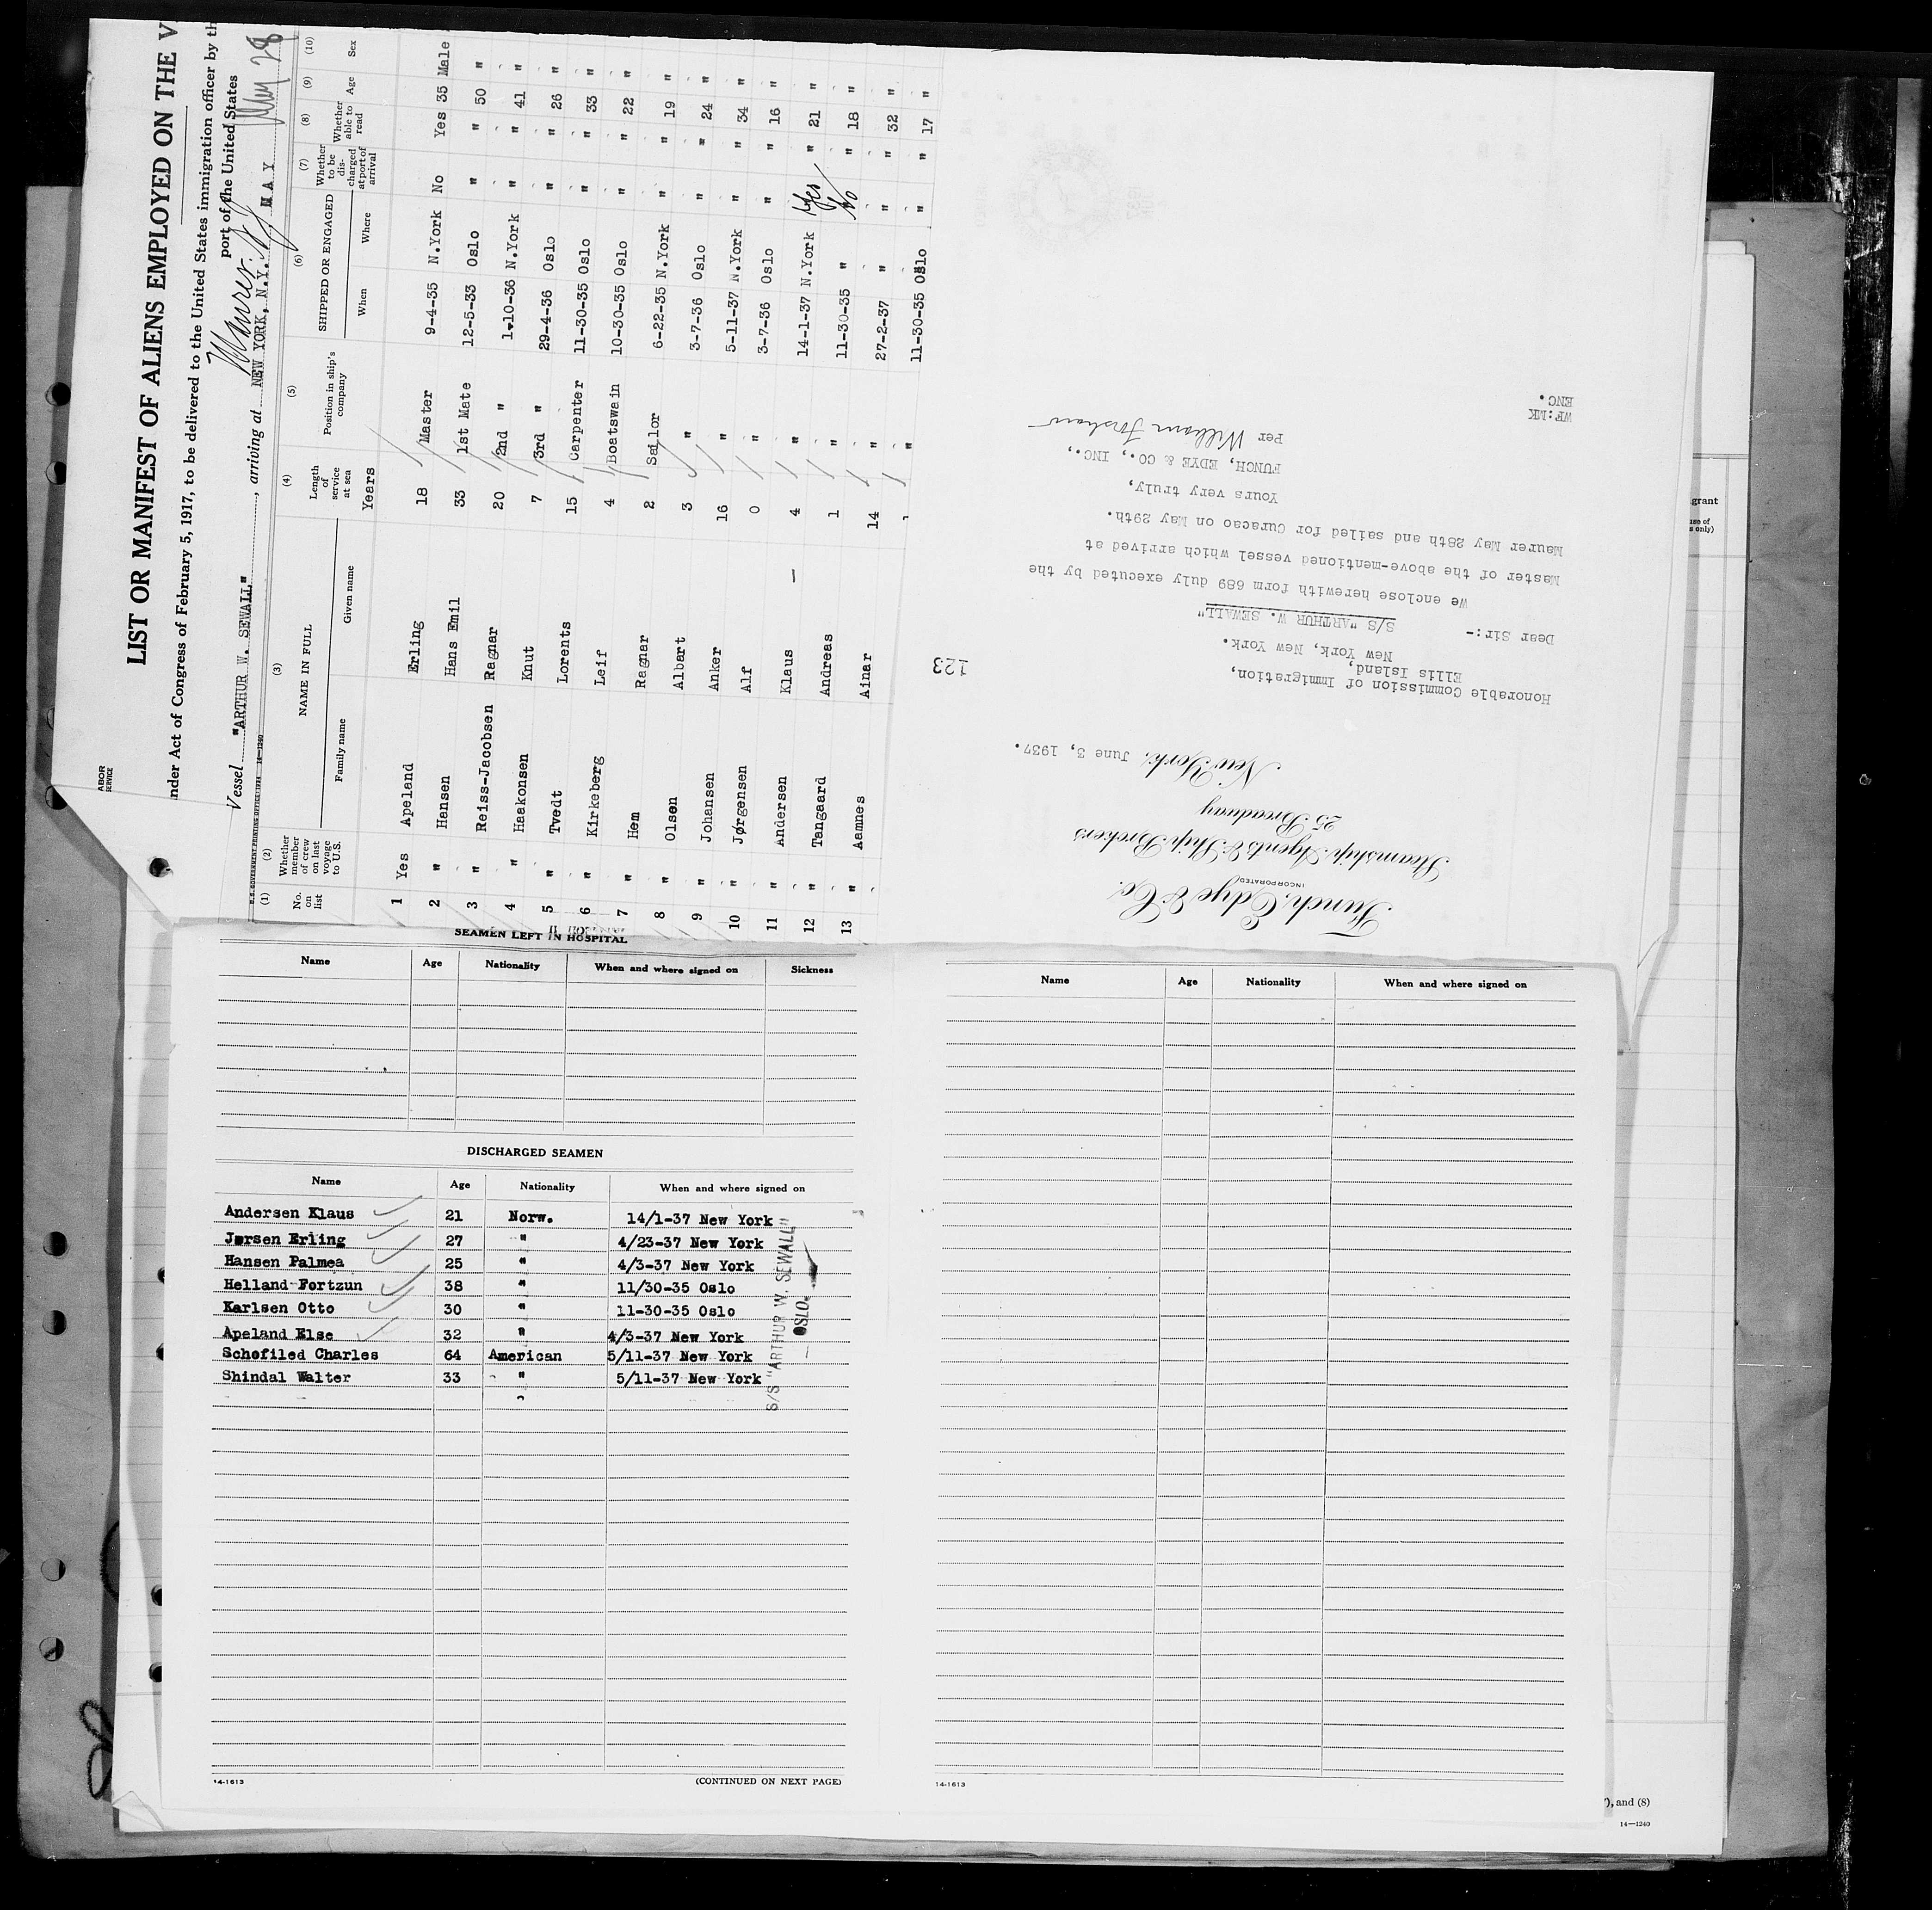 LIST OR MANIFEST OF ALIENS EMPLOYED ON THE V
nder Act of Congress of February 5, 1917, to be delivered to the United States immigration officer by th
port of the United States
Maurer. N.J. May 28
Vessel "ARTHUR W. SEWALL", arriving at NEW YORK, N.Y. MAY
ABOR
SERVICE
U.S. GOVERNMENT PRINTING OFFICE: 1934 14—1240
(1) (2) (3) (4) (5) (6) (7) (8) (9) (10)
No. on list
Whether member of crew on last voyage to U.S.
NAME IN FULL
Family name Given name
Length of service at sea
Years
Position in ship's company
SHIPPED OR ENGAGED
When Where
Whether to be discharged at port of arrival
Whether able to read
Age Sex
1 Yes Apeland Erling 18 Master 9-4-35 N.York No Yes 35 Male
2 " Hansen Hans Emil 33 1st Mate 12-5-33 Oslo " " 50 "
3 " Reiss-Jacobsen Ragnar 20 2nd " 1-10-36 N.York " " 41 "
4 " Haakonsen Knut 7 3rd " 29-4-36 Oslo " " 26 "
5 " Tvedt Lorents 15 Carpenter 11-30-35 Oslo " " 33 "
6 " Kirkeberg Leif 4 Boatswain 10-30-35 Oslo " " 22 "
7 " Hem Ragnar 2 Sailor 6-22-35 N.York " " 19 "
8 " Olsen Albart 3 " 3-7-36 Oslo " " 24 "
9 " Johansen Anker 16 " 5-11-37 N.York " " 34 "
10 " Jørgensen Alf 0 " 3-7-36 Oslo " " 16 "
11 " Andersen Klaus — 4 " 14-1-37 N.York Yes " 21 "
12 " Tangaard Andreas 1 " 11-30-35 " No " 18 "
13 " Aamnes Ainar 14 " 27-2-37 " " " 32 "
1 " 11-30-35 Oslo " " 17 "
Funch, Edye & Co.
INCORPORATED
Steamship Agents & Ship Brokers
25 Broadway
New York, June 3, 1937.
123
Honorable Commission of Immigration,
Ellis Island,
New York, New York.
Dear Sir:- S/S "ARTHUR W. SEWALL"
We enclose herewith form 689 duly executed by the
Master of the above-mentioned vessel which arrived at
Maurer May 28th and sailed for Curacao on May 29th.
Yours very truly,
FUNCH, EDYE & CO., INC.,
Per William Forshaw
WF:MK
ENC.
grant
use of
s only)
SEAMEN LEFT IN HOSPITAL
Name Age Nationality When and where signed on Sickness
DISCHARGED SEAMEN
Name Age Nationality When and where signed on
Andersen Klaus 21 Norw. 14/1-37 New York
Jørsen Erling 27 " 4/23-37 New York
Hansen Palmea 25 " 4/3-37 New York
Helland Fortzun 38 " 11/30-35 Oslo
Karlsen Otto 30 " 11-30-35 Oslo
Apeland Else 32 " 4/3-37 New York
Schofiled Charles 64 American 5/11-37 New York
Shindal Walter 33 " 5/11-37 New York
S/S "ARTHUR W. SEWALL"
OSLO.
14-1613 (CONTINUED ON NEXT PAGE)
Name Age Nationality When and where signed on
14-1613
), and (8)
14—1240